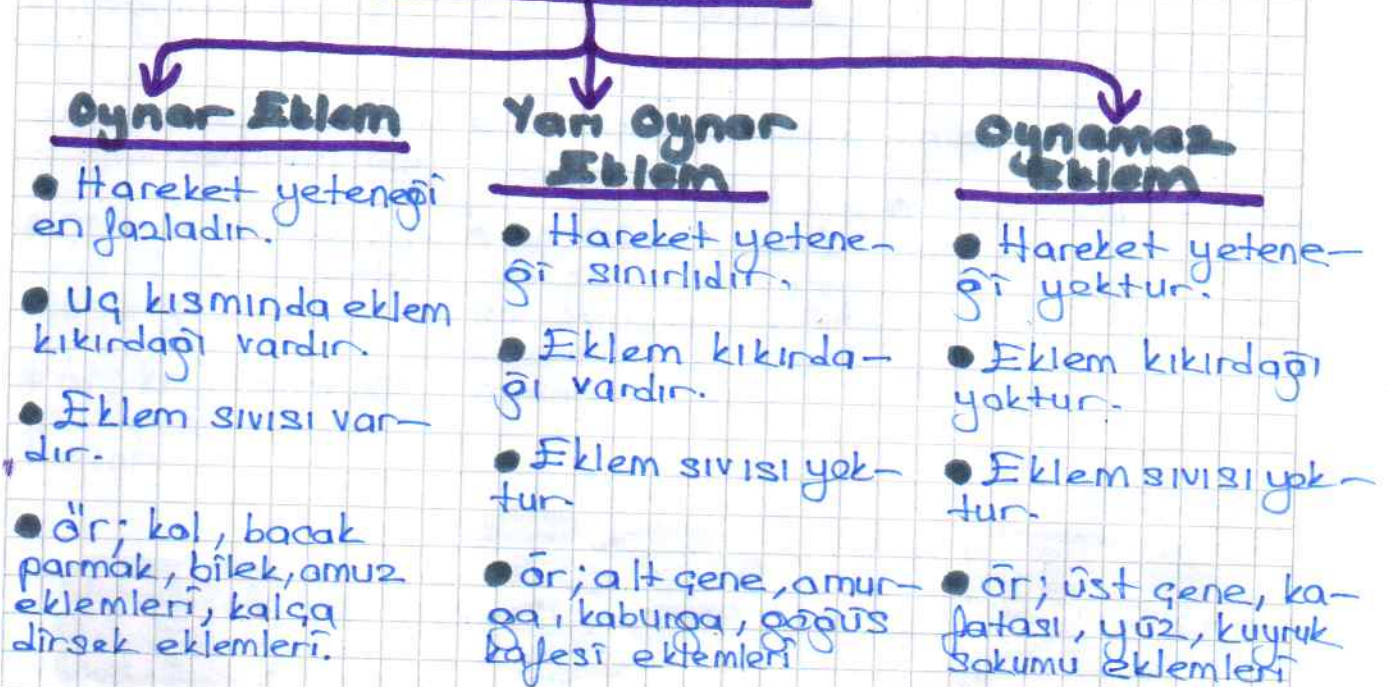 Oynar Eklem
● Hareket yeteneği
en fazladır.
● Uç kısmında eklem
kıkırdağı vardır.
● Eklem sıvısı var-
dır.
● ör; kol, bacak
parmak, bilek, omuz
eklemleri, kalça
dirsek eklemleri.
Yarı Oynar
Eklem
● Hareket yetene-
ği sınırlıdır.
● Eklem kıkırda-
ğı vardır.
● Eklem sıvısı yok-
tur.
● ör; alt çene, omur-
ga, kaburga, göğüs
kafesi eklemleri
Oynamaz
Eklem
● Hareket yetene-
ği yoktur.
● Eklem kıkırdağı
yoktur.
● Eklem sıvısı yok-
tur.
● ör; üst çene, ka-
fatası, yüz, kuyruk
sokumu eklemleri